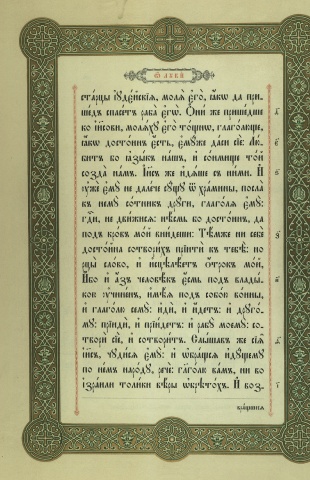 Ѿ лꙋкѝ
ста́рцы іꙋде́йскїѧ, молѧ̀ є҆го̀, ꙗ҆́кѡ да при-
ше́дъ спасе́тъ раба̀ є҆гѡ̀. Ѻ҆ни́ же прише́дше
ко і҆и҃сови, молѧ́хꙋ є҆го̀ то́щнѡ, глаго́люще,
ꙗ҆́кѡ досто́инъ є҆́сть, є҆мꙋ́же да́си сїѐ: лю́-
битъ бо ꙗ҆зы́къ на́шъ, и҆ со́нмище то́й
созда̀ на́мъ. І҆и҃съ же и҆дѧ́ше съ ни́ми. И҆
ᲂу҆жѐ є҆мꙋ̀ не дале́че сꙋ́щꙋ ѿ хра́мины, посла̀
къ немꙋ̀ со́тникъ дрꙋ́ги, глаго́лѧ є҆мꙋ̀:
гдⷭ҇и, не дви́жисѧ: нѣ́смь бо досто́инъ, да
под̾ кро́въ мо́й вни́деши: Тѣ́мже ни себѐ
досто́йна сотвори́хъ прїитѝ къ тебѣ̀: но
рцы̀ сло́во, и҆ и҆сцѣлѣ́етъ ѻ҆́трокъ мо́й.
И҆́бо и҆ а҆́зъ человѣ́къ є҆́смь под̾ влады́-
кою ᲂу҆чине́нъ, и҆мѣ́ѧ под̾ собо́ю во́ины,
и҆ глаго́лю семꙋ̀: и҆дѝ, и҆ и҆́детъ: и҆ дрꙋго́-
мꙋ: прїидѝ, и҆ прїи́детъ: и҆ рабꙋ̀ моемꙋ̀: со-
творѝ сїѐ, и҆ сотвори́тъ. Слы́шавъ же сїѧ̑
і҆и҃съ, чꙋди́сѧ є҆мꙋ̀: и҆ ѡ҆бра́щьсѧ и҆дꙋ́щемꙋ
по не́мъ наро́дꙋ, речѐ: глаго́лю ва́мъ, ни во
і҆зра́или толи́ки вѣ́ры ѡ҆брѣто́хъ. И҆ воз-
вра́щшїѧ